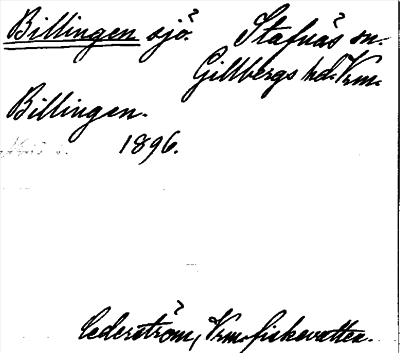 Billingen sjö. Stafnäs sn.
Gillbergs hd. Vrm.
Billingen.
1896.
Cederström, Vrm. fiskevatten.